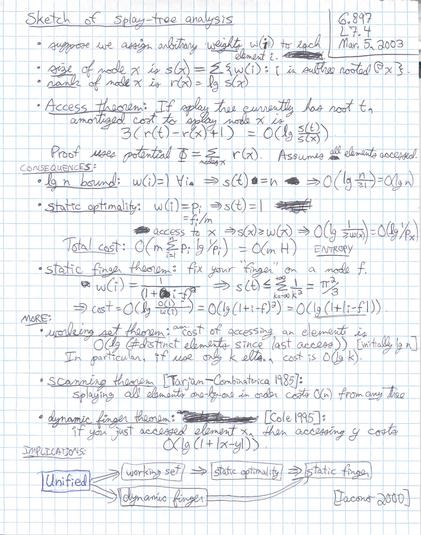 Sketch of splay-tree analysis
6.897
L7.4
Mar. 5, 2003
• suppose we assign arbitrary weights w(i) to each element i.
• size of node x is s(x) = Σ{w(i) : i in subtree rooted @ x}.
• rank of node x is r(x) = lg s(x)
• Access theorem: If splay tree currently has root t,
amortized cost to splay node x is
3(r(t) - r(x) + 1) = O(lg s(t)/s(x))
Proof uses potential Φ = Σ r(x). Assumes all elements accessed.
nodes x
CONSEQUENCES:
• lg n bound: w(i)=1 ∀i ⇒ s(t) = n ⇒ O(lg n/1) = O(lg n)
• static optimality: w(i) = pᵢ ⇒ s(t) = 1
= fᵢ/m
access to x ⇒ s(x) ≥ w(x) ⇒ O(lg 1/w(x)) = O(lg 1/pₓ)
Total cost: O(m Σ pᵢ lg 1/pᵢ) = O(m H)
ENTROPY
• static finger theorem: fix your "finger" on a node f.
w(i) = 1/(1+|i-f|)² ⇒ s(t) ≤ Σ 1/k² = π²/3
⇒ cost = O(lg O(1)/w(i)) = O(lg (1+i-f)²) = O(lg (1+|i-f|)).
MORE:
• working set theorem: cost of accessing an elements is
O(lg (# distinct elements since last access)) [initially lg n]
In particular, if use only k elts., cost is O(lg k).
• scanning theorem [Tarjan-Combinatorica 1985]:
splaying all elements one-by-one in order costs O(n) from any tree
• dynamic finger theorem: [Cole 1995]:
if you just accessed element x, then accessing y costs
O(lg (1+|x-y|))
IMPLICATIONS:
Unified
working set ⇒ static optimality ⇒ static finger
dynamic finger
[Iacono 2000]